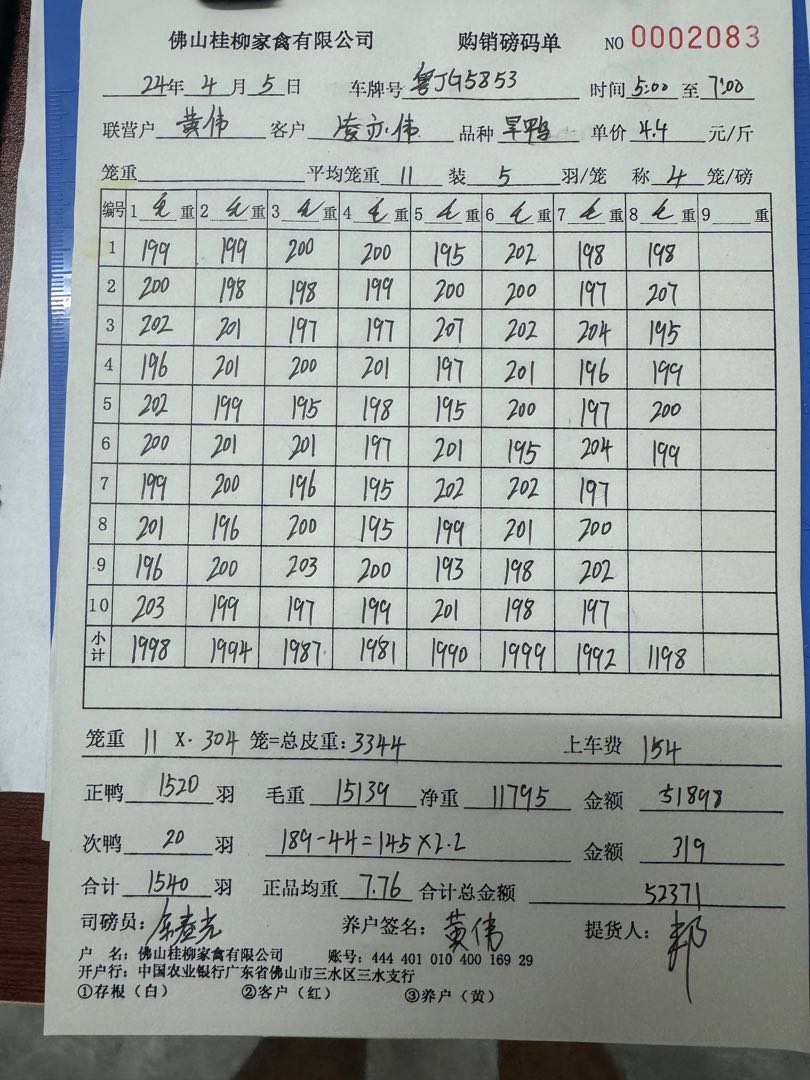 佛山桂柳家禽有限公司 购销磅码单 NO 0002083
24年 4 月 5 日 车牌号 粤JG5853 时间 5:00 至 7:00
联营户 黄伟 客户 凌亦伟 品种 旱鸭 单价 4.4 元/斤
笼重 平均笼重 11 装 5 羽/笼 称 4 笼/磅
编号 1 毛 重 2 毛 重 3 毛 重 4 毛 重 5 毛 重 6 毛 重 7 毛 重 8 毛 重 9 重
1 199 199 200 200 195 202 198 198
2 200 198 198 199 200 200 197 207
3 202 201 197 197 207 202 204 195
4 196 201 200 201 197 201 196 199
5 202 199 195 198 195 200 197 200
6 200 201 201 197 201 195 204 199
7 199 200 196 195 202 202 197
8 201 196 200 195 199 201 200
9 196 200 203 200 193 198 202
10 203 199 197 199 201 198 197
小计 1998 1994 1987 1981 1990 1999 1992 1198
笼重 11 X 304 笼=总皮重: 3344 上车费 154
正鸭 1520 羽 毛重 15139 净重 11795 金额 51898
次鸭 20 羽 189-44=145×2.2 金额 319
合计 1540 羽 正品均重 7.76 合计总金额 52371
司磅员: 养户签名: 黄伟 提货人: 邦
户 名: 佛山桂柳家禽有限公司 账号: 444 401 010 400 169 29
开户行: 中国农业银行广东省佛山市三水区三水支行
①存根(白) ②客户(红) ③养户(黄)